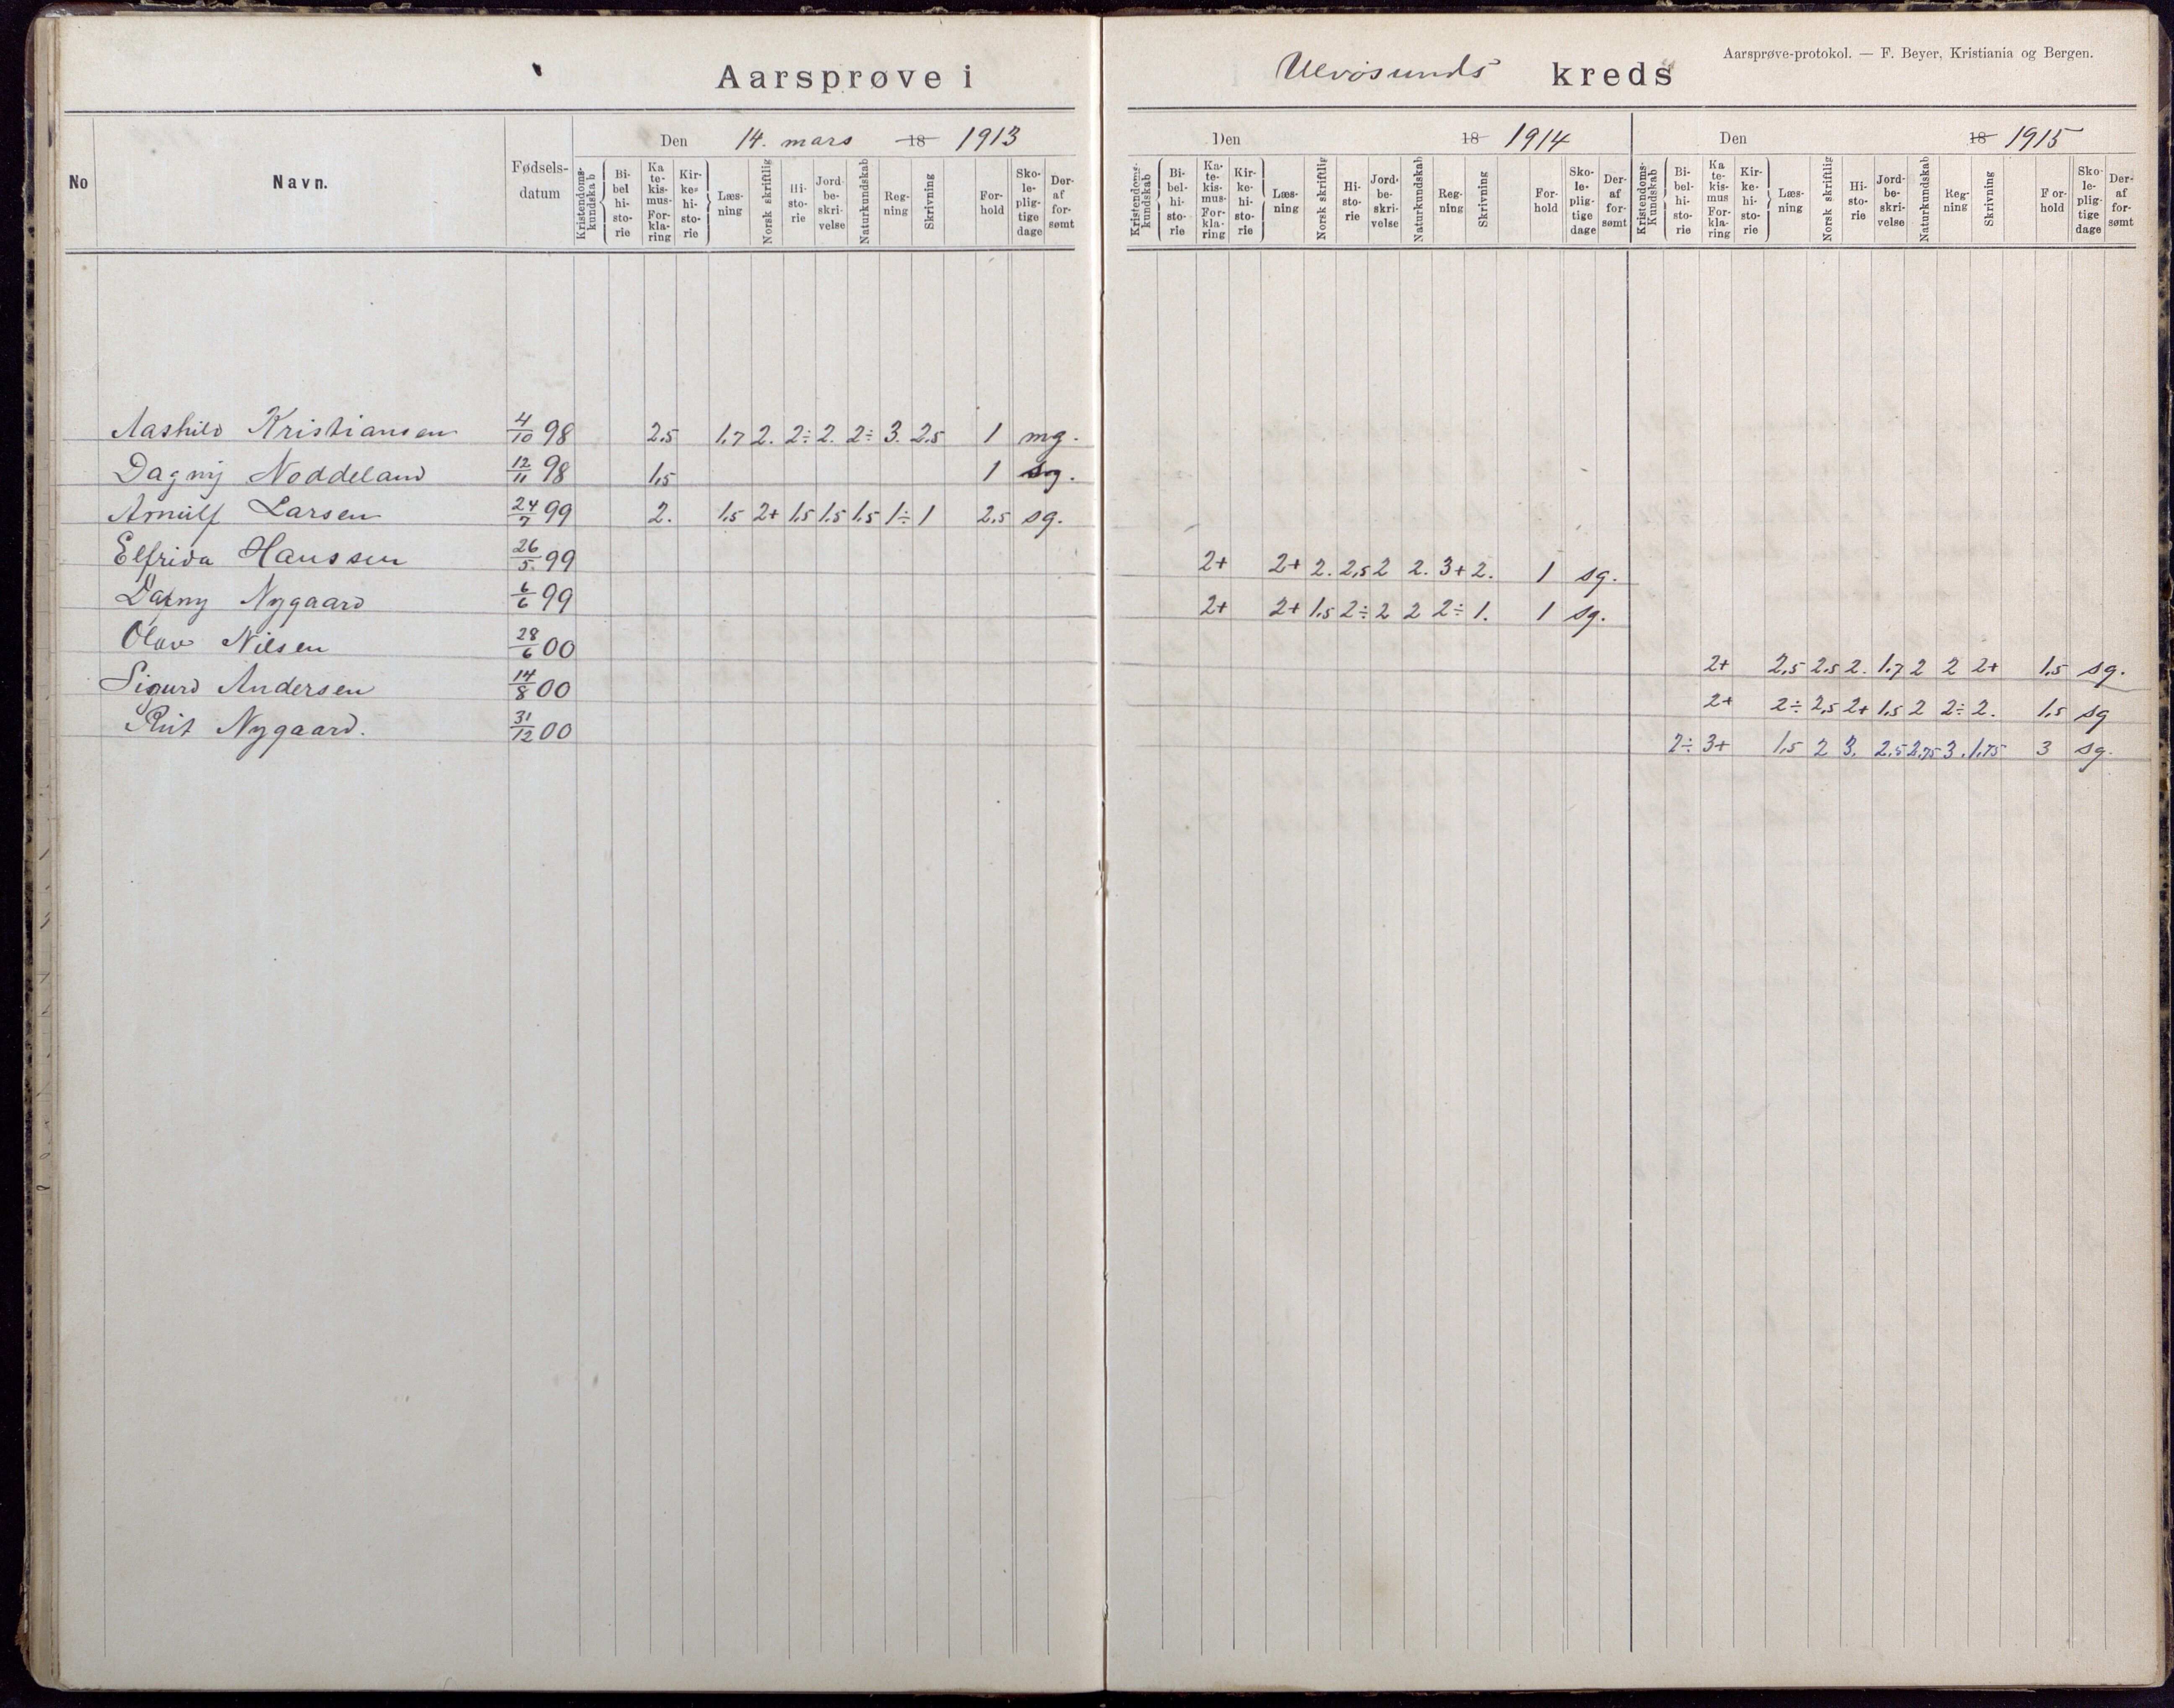 Aarsprøve i
Ulvøsunds kreds
Aarsprøve-protokol. — F. Beyer, Kristiania og Bergen.
No
Navn.
Fødsels-
datum
Den 14. mars 18 1913
Kristendoms-kundskab
Bi-bel hi-sto-rie
Ka te-kis-mus-For-kla-ring
Kir-ke-hi-sto-rie
Læs-ning
Norsk skriftlig
Hi-sto-rie
Jord-be-skri-velse
Naturkundskab
Reg-ning
Skrivning
For-hold
Sko-le-plig-tige dage
Der-af for-sømt
Den 18 1914
Kristendoms-kundskab
Bi-bel-hi-sto-rie
Ka-te-kis-mus-For-kla-ring
Kir-ke-hi-sto-rie
Læs-ning
Norsk skriftlig
Hi-sto-rie
Jord-be-skri-velse
Naturkundskab
Reg-ning
Skrivning
For-hold
Sko-le-plig-tige dage
Der-af for-sømt
Den 18 1915
Kristendoms-Kundskab
Bi-bel-hi-sto-rie
Ka te-kis-mus For-kla-ring
Kir-ke-hi-sto-rie
Læs-ning
Norsk skriftlig
Hi-sto-rie
Jord-be-skri-velse
Naturkundskab
Reg-ning
Skrivning
For-hold
Sko-le-plig-tige dage
Der-af for-sømt
Aashild Kristiansen 4/10 98 2,5 1,7 2. 2÷ 2. 2÷ 3. 2,5 1 mg.
Dagny Noddeland 12/11 98 1,5 1 sg.
Arnulf Larsen 24/7 99 2. 1,5 2+ 1,5 1,5 1,5 1÷ 1 2,5 sg.
Elfrida Hanssen 26/5. 99 2+ 2+ 2. 2,5 2 2. 3+ 2. 1 sg.
Dagny Nygaard 6/6 99 2+ 2+ 1,5 2÷ 2 2 2÷ 1. 1 sg.
Olav Nilsen 28/6 00 2+ 2,5 2,5 2. 1,7 2 2 2+ 1,5 sg.
Sigurd Andersen 14/8 00 2+ 2÷ 2,5 2+ 1,5 2 2÷ 2. 1,5 sg
Rut Nygaard. 31/12 00 2÷ 3+ 1,5 2 3. 2,5 2,75 3. 1,75 3 sg.